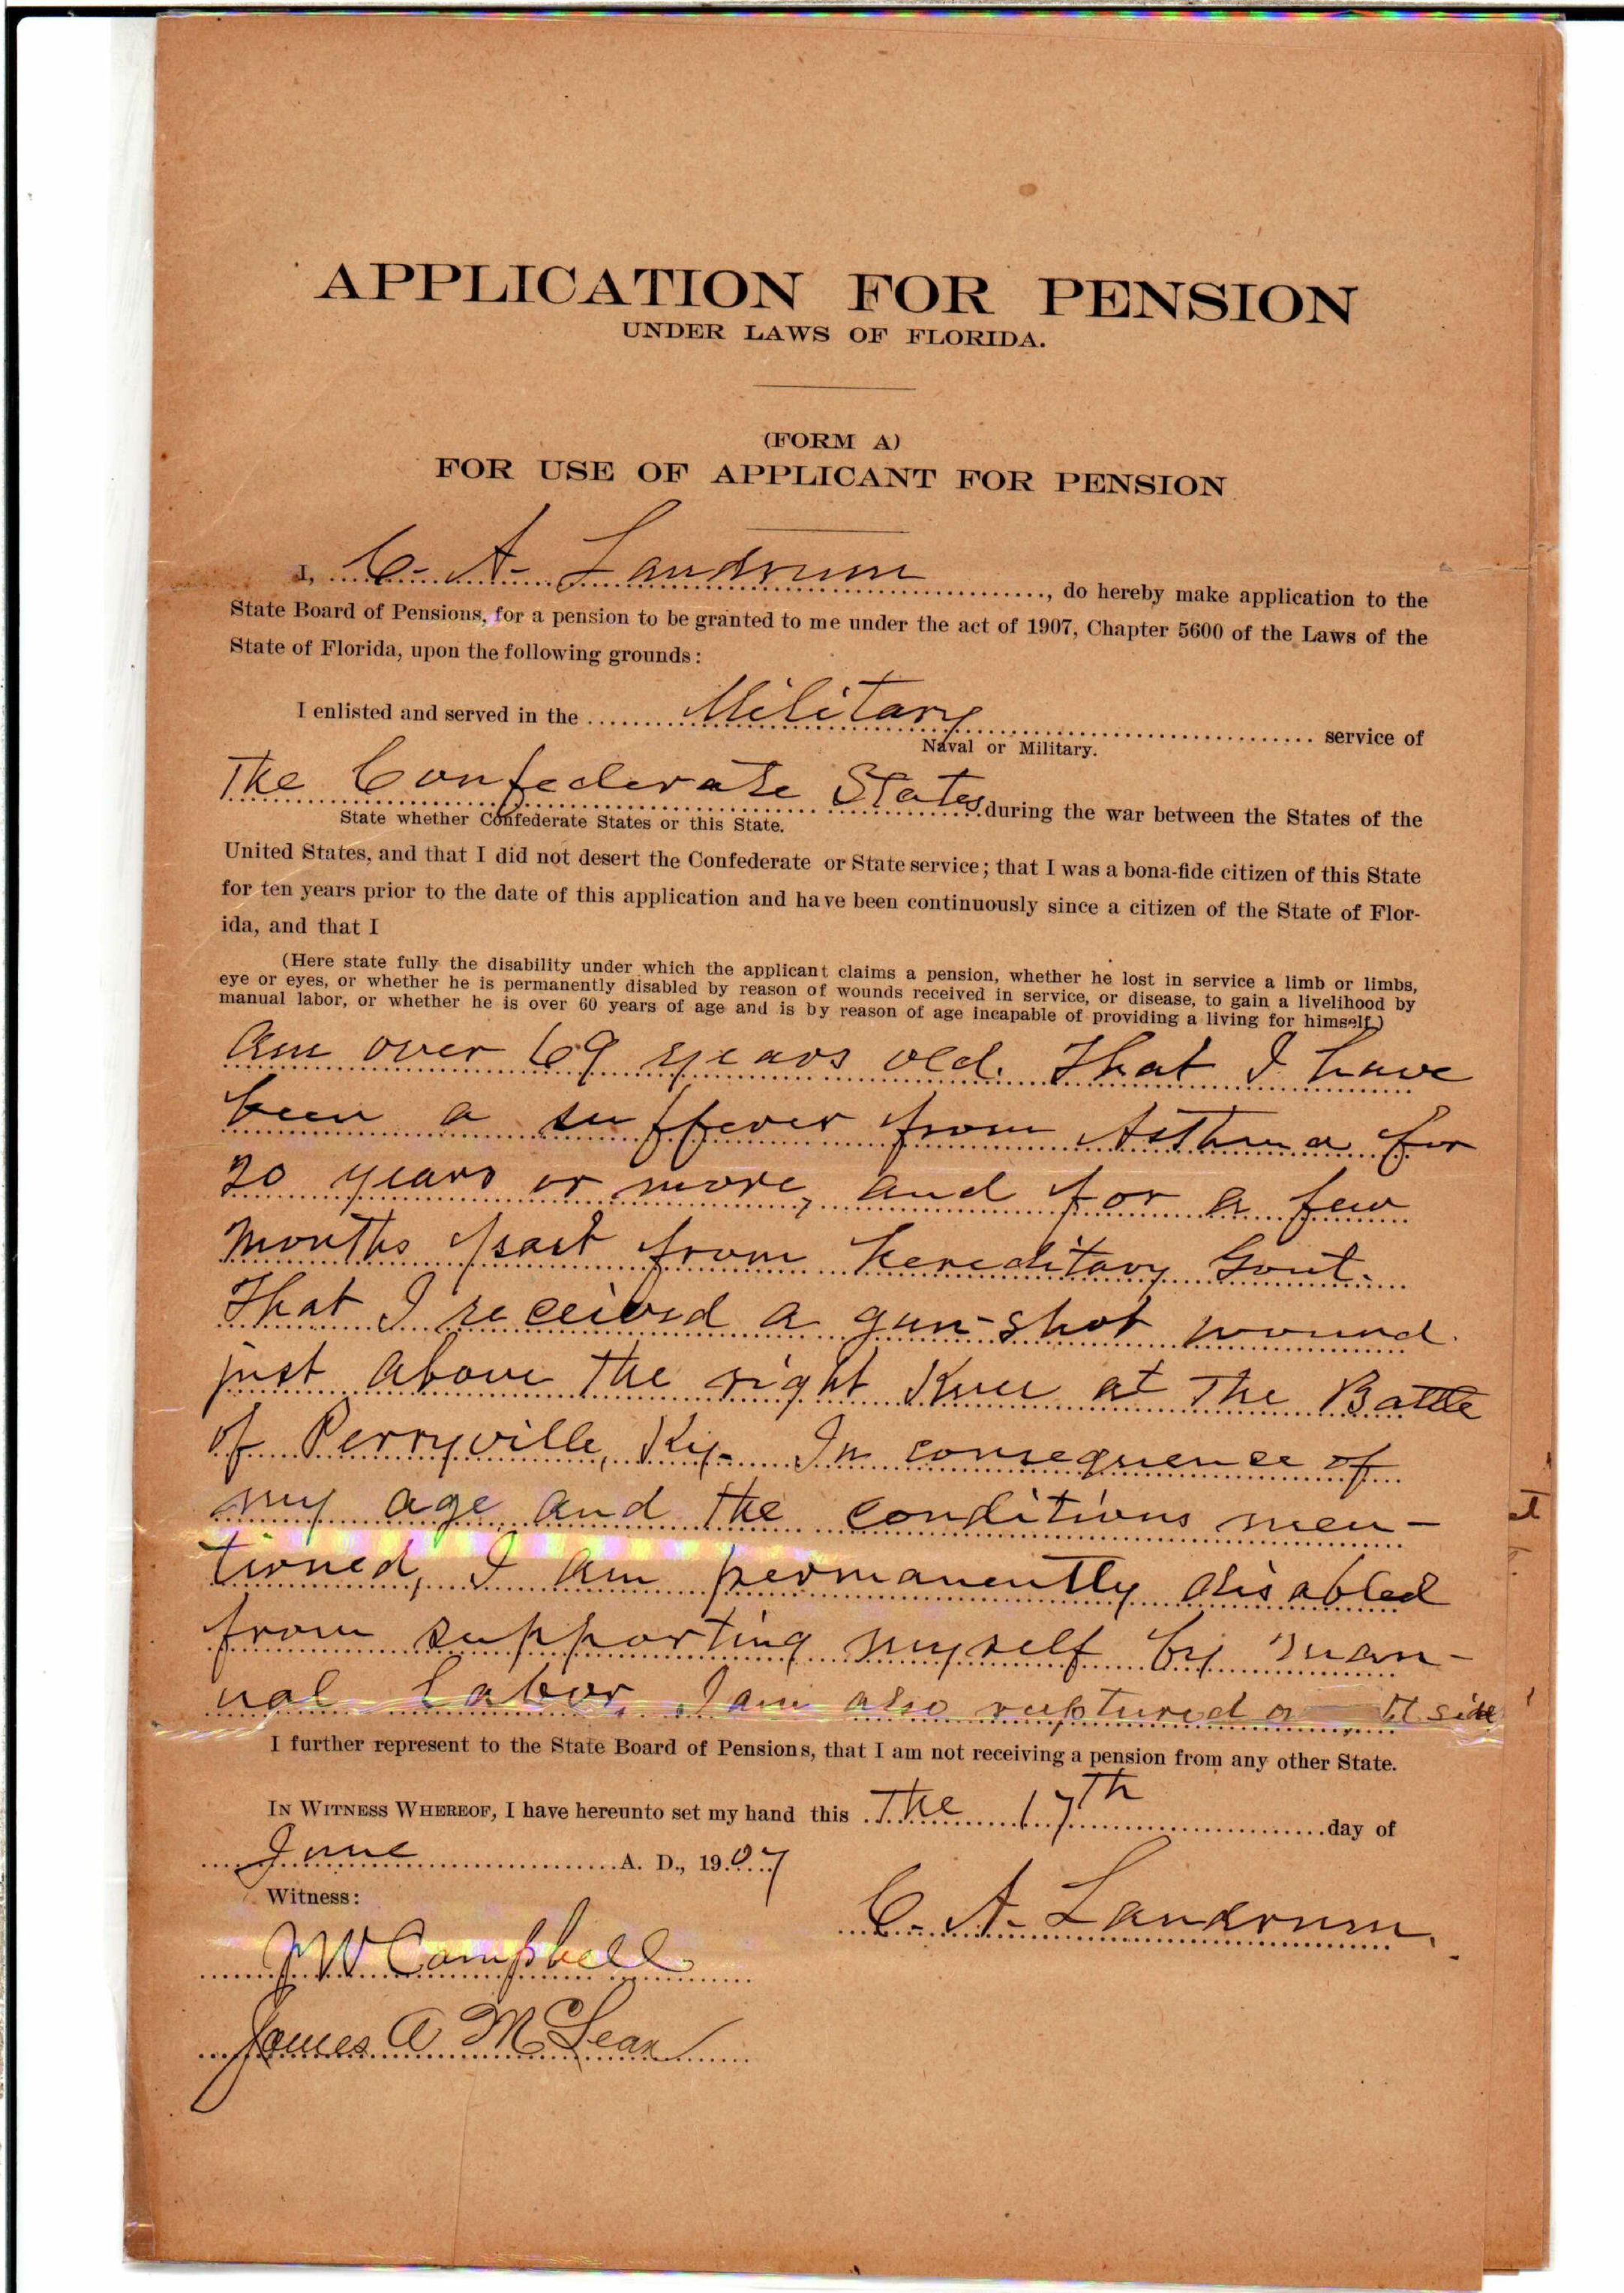 APPLICATION FOR PENSION
UNDER LAWS OF FLORIDA.
(FORM A)
FOR USE OF APPLICANT FOR PENSION
I, C. A. Landrum, do hereby make application to the
State Board of Pensions, for a pension to be granted to me under the act of 1907, Chapter 5600 of the Laws of the
State of Florida, upon the following grounds:
I enlisted and served in the Military service of
Naval or Military.
The Confederate States during the war between the States of the
State whether Confederate States or this State.
United States, and that I did not desert the Confederate or State service; that I was a bona-fide citizen of this State
for ten years prior to the date of this application and have been continuously since a citizen of the State of Flor-
ida, and that I
(Here state fully the disability under which the applicant claims a pension, whether he lost in service a limb or limbs,
eye or eyes, or whether he is permanently disabled by reason of wounds received in service, or disease, to gain a livelihood by
manual labor, or whether he is over 60 years of age and is by reason of age incapable of providing a living for himself.)
am over 69 years old. That I have
been a sufferer from Asthma for
20 years or more, and for a few
months past from hereditary Gout.
That I received a gun-shot wound
just above the right Knee at The Battle
of Perryville, Ky. In consequence of
my age and the conditions men-
tioned, I am permanently disabled
from supporting myself by man-
ual labor. I am also ruptured side
I further represent to the State Board of Pensions, that I am not receiving a pension from any other State.
IN WITNESS WHEREOF, I have hereunto set my hand this The 17th day of
June A. D., 1907
Witness:
C. A. Landrum.
J W Campbell
James A McLean